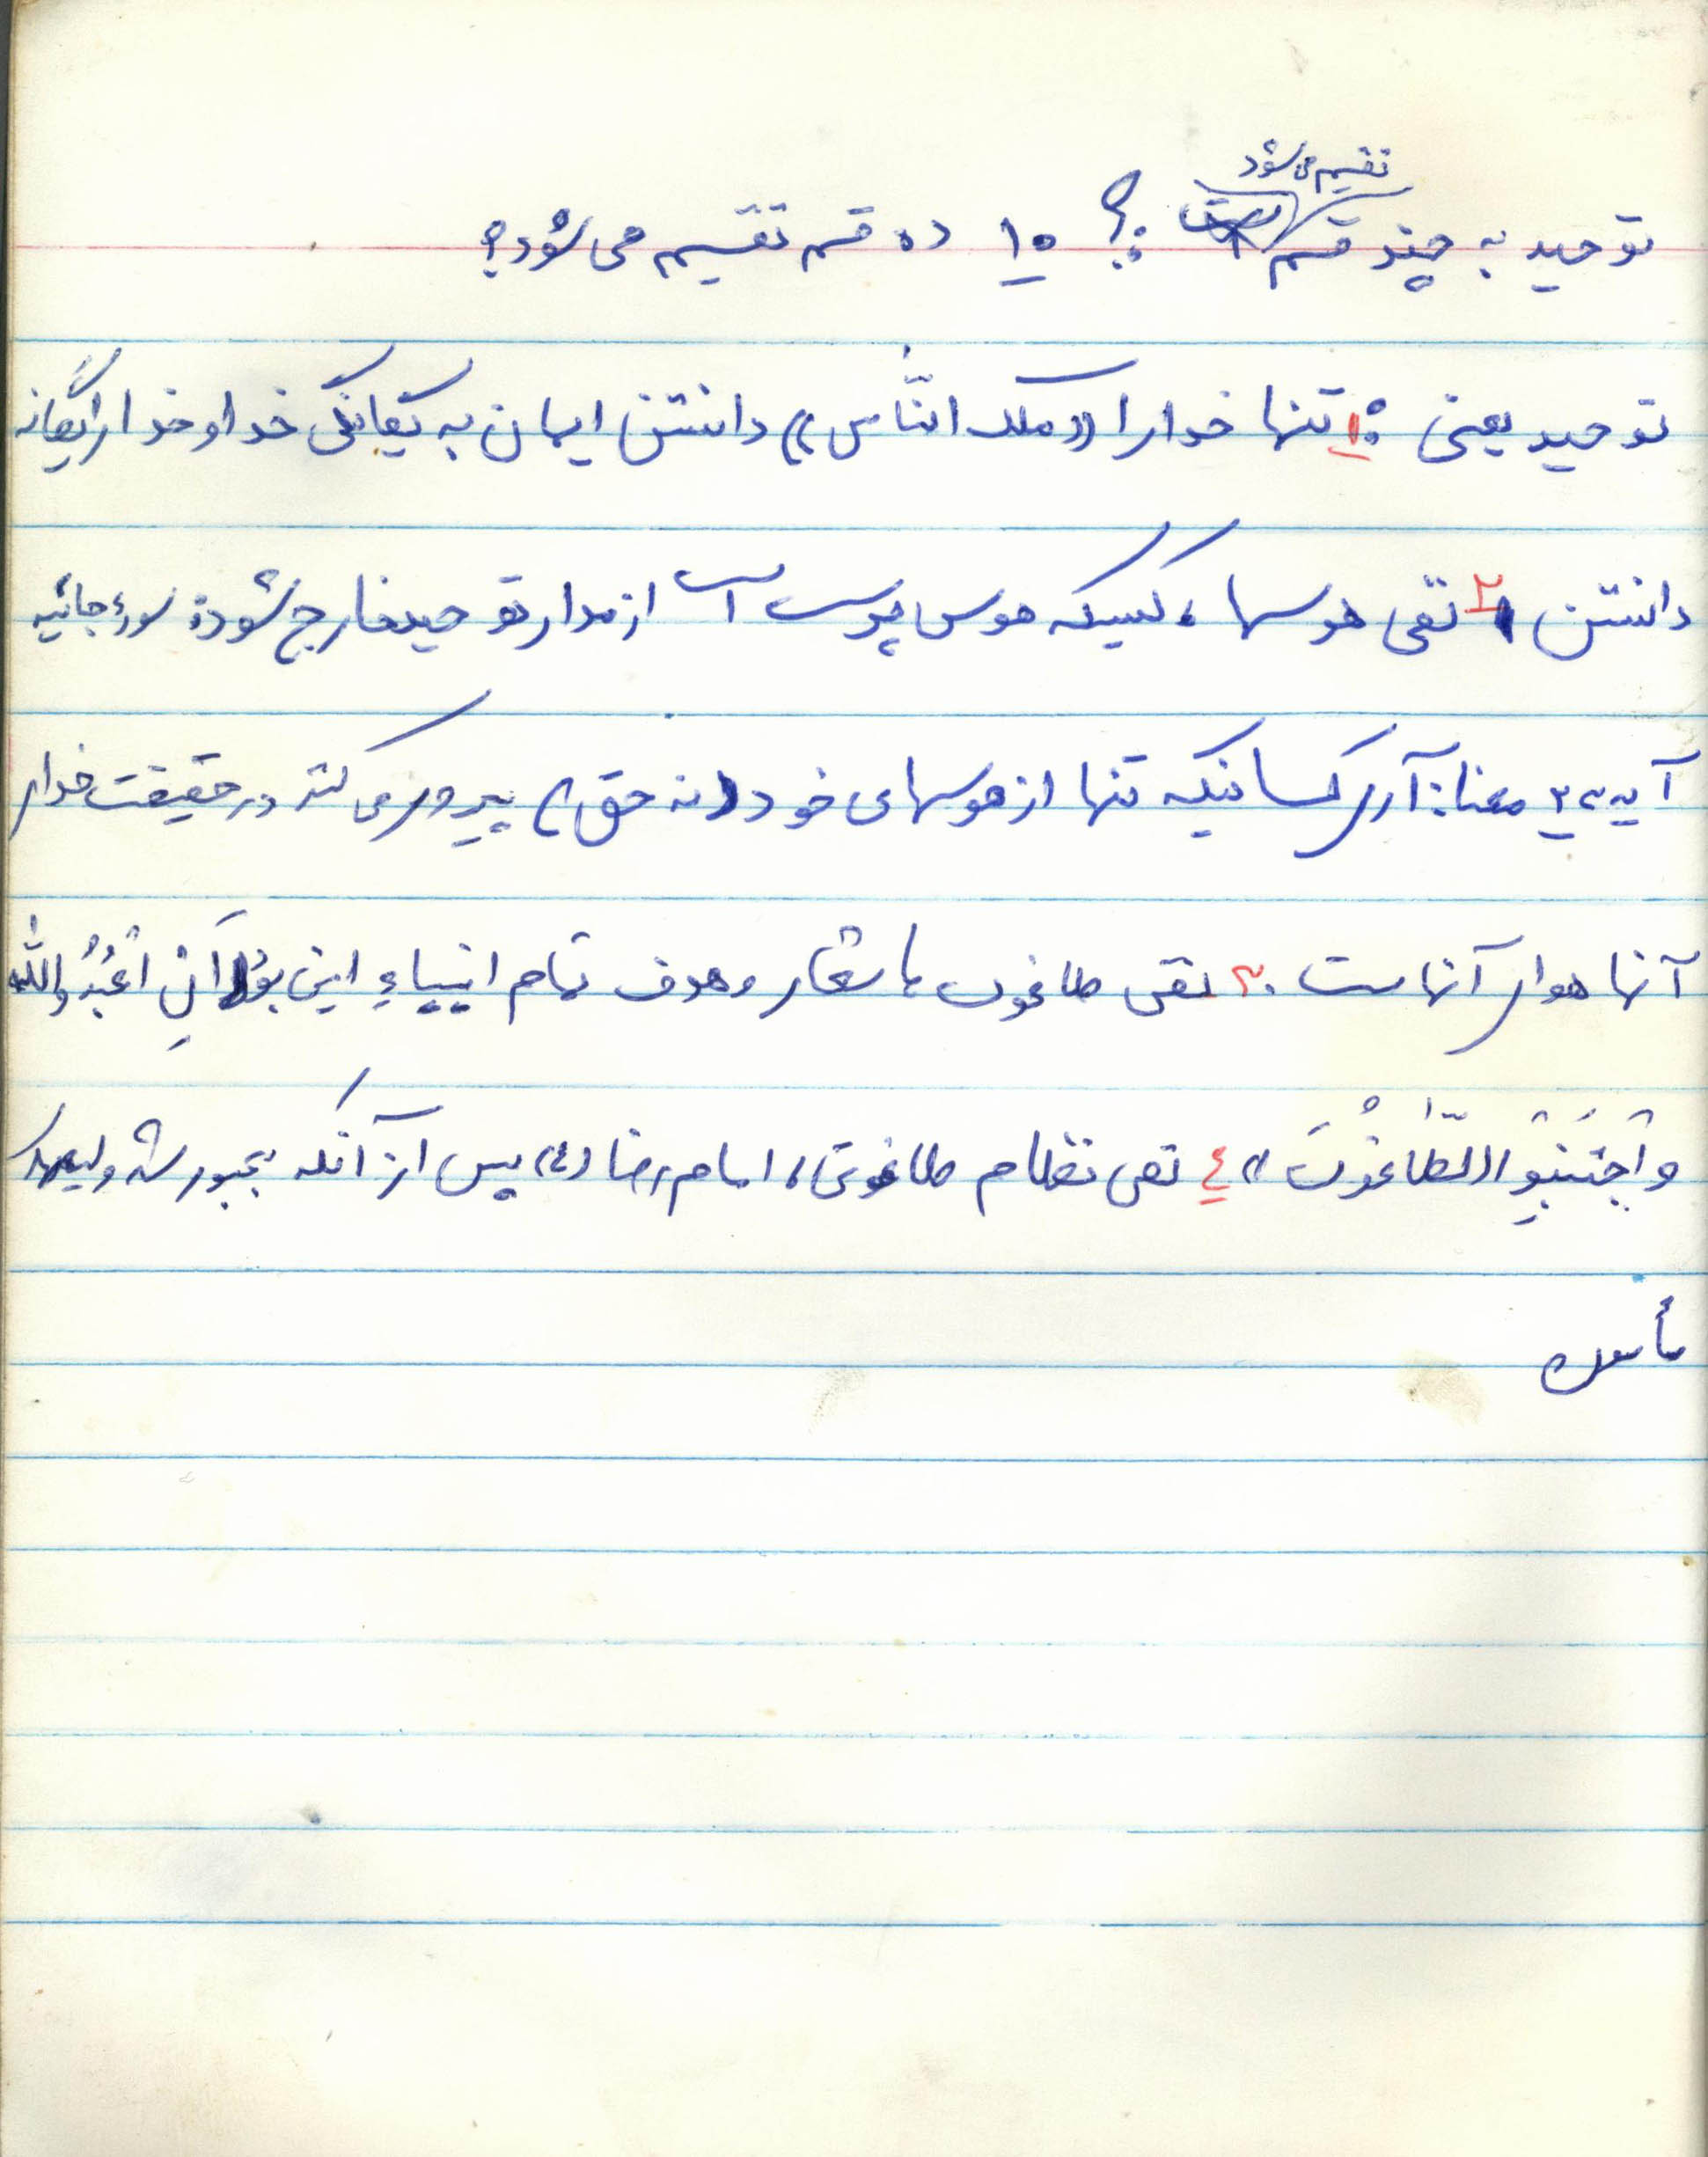 تقسیم می شود
توحید به چند قسم ؟: ۱۰ ده قسم تقسیم می شود؟
توحید یعنی : ۱ تنها خدا را «ملک الناس» دانستن ایمان به یگانگی خدا و خدا را یگانه
دانستن ۲ نفی هوسها، کسیکه هوس پرست است از مدار توحید خارج شوده سوره جاثیه
آیه ۲۳ معنا: آری کسانیکه تنها از هوسهای خود (نه حق) پیروی می کند در حقیقت خدای
آنها هوای آنهاست ۳ نفی طاغوت، شعار و هدف تمام انبیاء این بود أَنِ اعْبُدُوالله
وَاجْتَنِبُوا الطَّاغُوتَ» ٤ نفی نظام طاغوتی، امام رضا (ع) پس از آنکه مجبور شد ولیعهد
مأمون